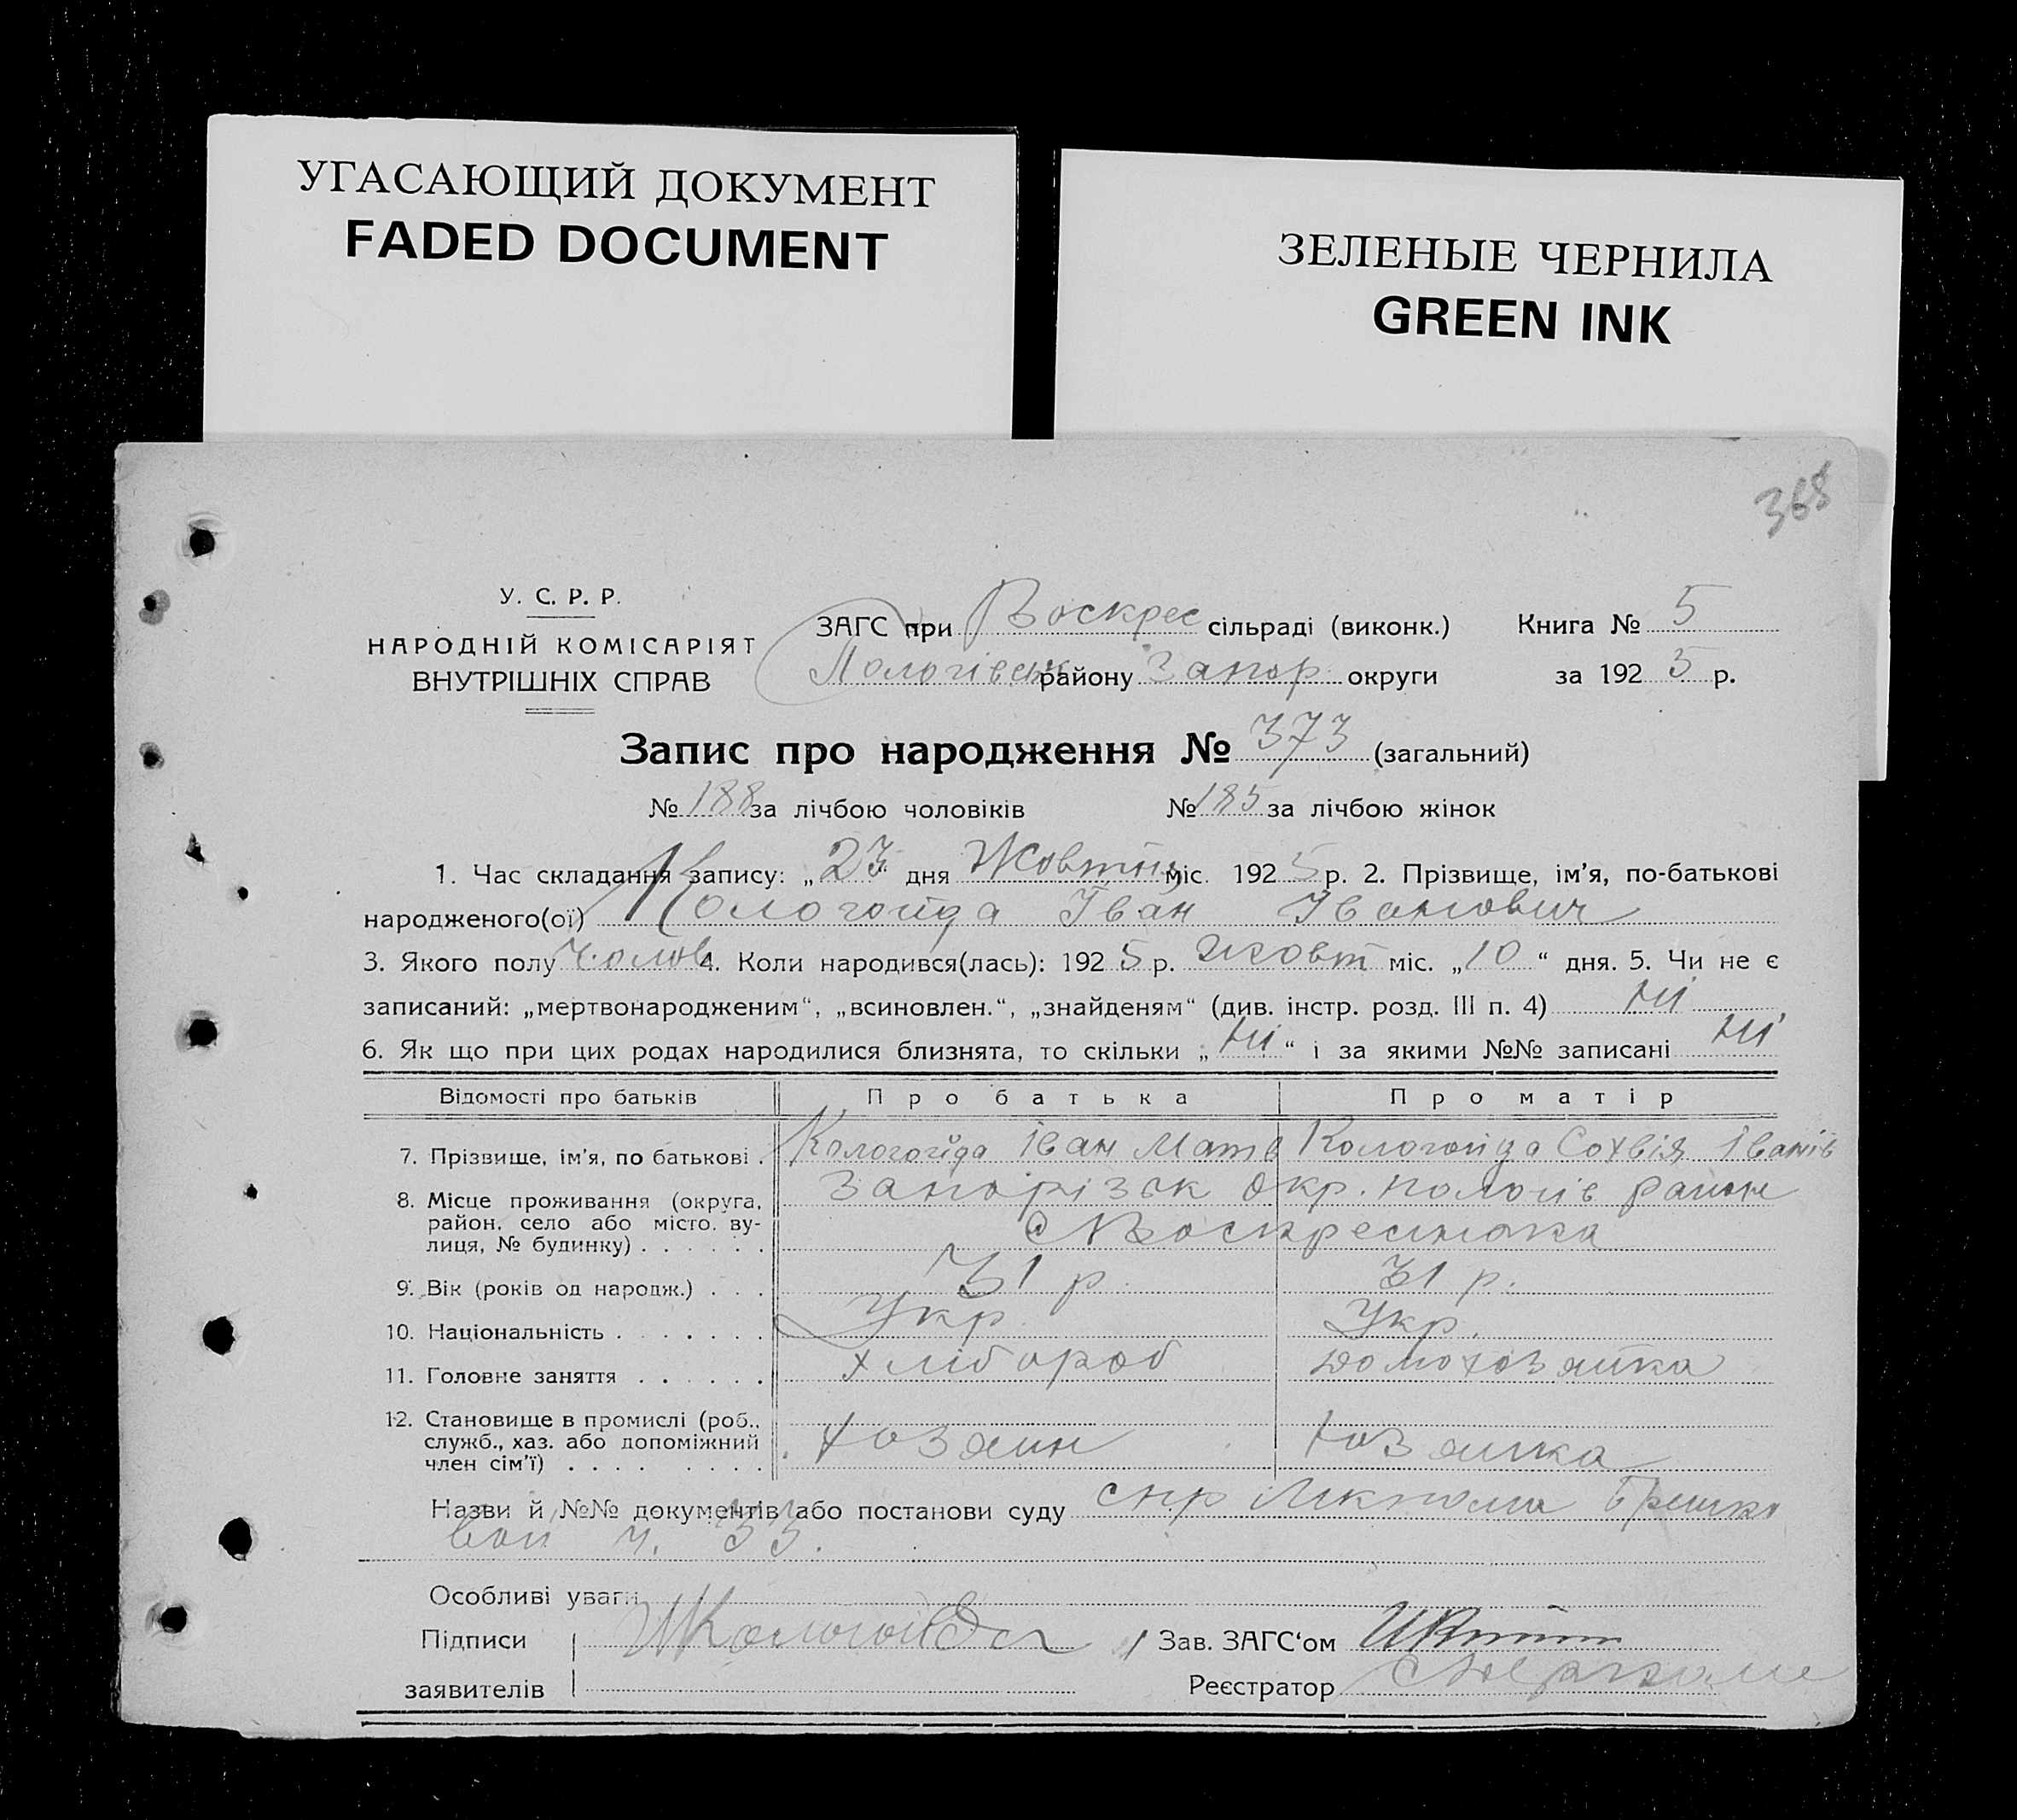 УГАСАЮЩИЙ ДОКУМЕНТ
FADED DOCUMENT
ЗЕЛЕНЫЕ ЧЕРНИЛА
GREEN INK
368
У. С. Р. Р.
НАРОДНІЙ КОМІСАРІЯТ
ВНУТРІШНІХ СПРАВ
ЗАГС при Воскрес сільраді (виконк.) Книга № 5
Пологівськ району Запор округи за 1925 р.
Запис про народження № 373 (загальний)
№ 188 за лічбою чоловіків № 185 за лічбою жінок
1. Час складання запису: „23“ дня Жовтня міс. 1925 р. 2. Прізвище, ім’я, по-батькові
народженого(ої) Кологойда Іван Іванович
3. Якого полу Чолов 4. Коли народився(лась): 1925 р. Жовт міс. „10“ дня. 5. Чи не є
записаний: „мертвонародженим“, „всиновлен.“, „знайденям“ (див. інстр. розд. III п. 4) Ні
6. Як що при цих родах народилися близнята, то скільки „Ні“ і за якими №№ записані Ні
Відомості про батьків Про батька Про матір
7. Прізвище, ім’я, по батькові . Кологойда Іван Матв Кологойда Сохвія Іванів
8. Місце проживання (округа, Запорізьк Окр. Пологів район
район, село або місто, ву- с Воскресенка
лиця, № будинку) . . . . . .
9. Вік (років од народж.) . . . 31 р. 31 р.
10. Національність . . . . . . . Укр. Укр.
11. Головне заняття . . . . . . хлібороб домохозяйка
12. Становище в промислі (роб.,
служб., хаз. або допоміжний хозяин хозяйка
член сім’ї) . . . . . . . . .
Назви й №№ документів або постанови суду
ч. 33.
Особливі уваги
Підписи И Кологойда Зав. ЗАГС‘ом
заявителів Реєстратор